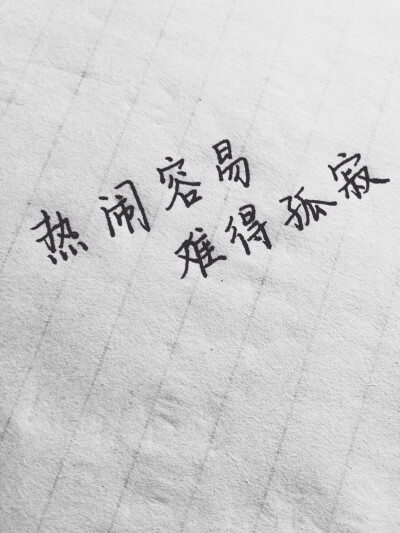 热闹容易
难得孤寂